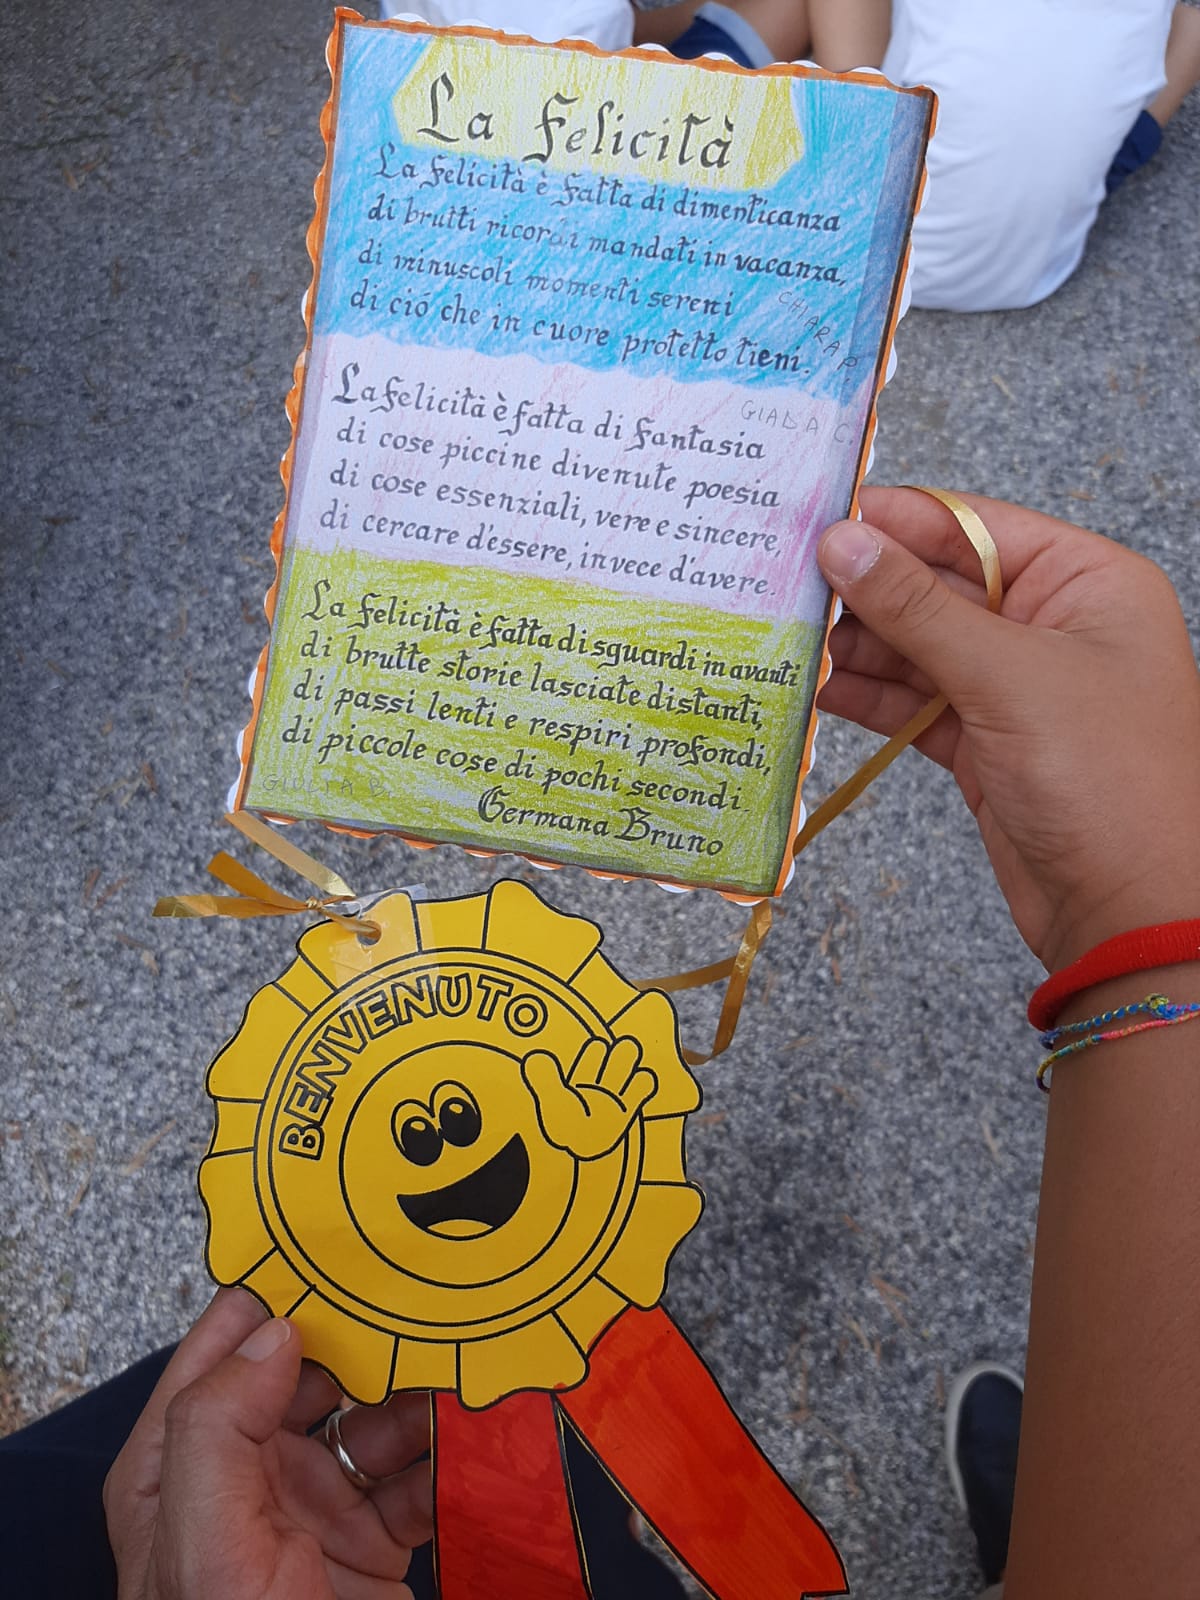 La Felicità
La Felicità è fatta di dimenticanza
di brutti ricordi mandati in vacanza,
di minuscoli momenti sereni
di ció che in cuore protetto tieni.
CHIARA P.
GIADA C.
La Felicità è fatta di fantasia
di cose piccine divenute poesia
di cose essenziali, vere e sincere,
di cercare d'essere, invece d'avere.
La Felicità è fatta di sguardi in avanti
di brutte storie lasciate distanti,
di passi lenti e respiri profondi,
di piccole cose di pochi secondi.
GIULIA B.
Germana Bruno
BENVENUTO